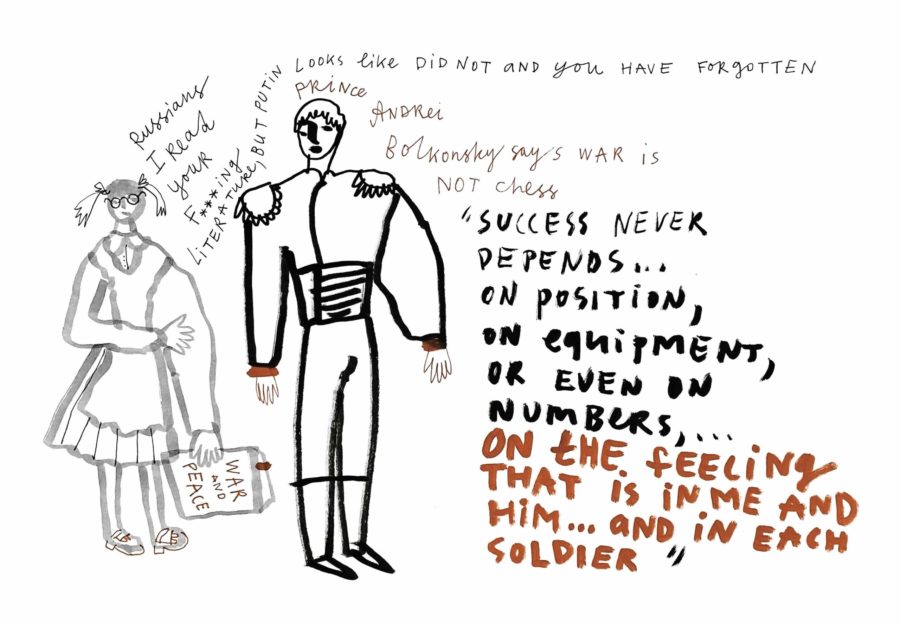 Russians
I Read
your
F***ing
LITERATURE, BUT PUTIN
LOOKS like DID NOT and you HAVE FORGOTTEN
PRINCE
ANDREI
Bolkonsky says WAR is
NOT chess
"SUCCESS NEVER
DEPENDS...
ON POSITION,
ON equipMENT,
OR EVEN ON
NUMBERS,...
ON thE fEELiNg
THAT is iN ME AND
HiM... AND iN EACH
SOLDIER"
WAR
AND
PEACE